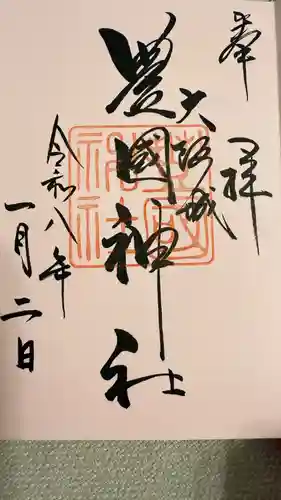 奉拝
大坂城
豊國神社
令和八年
一月二日